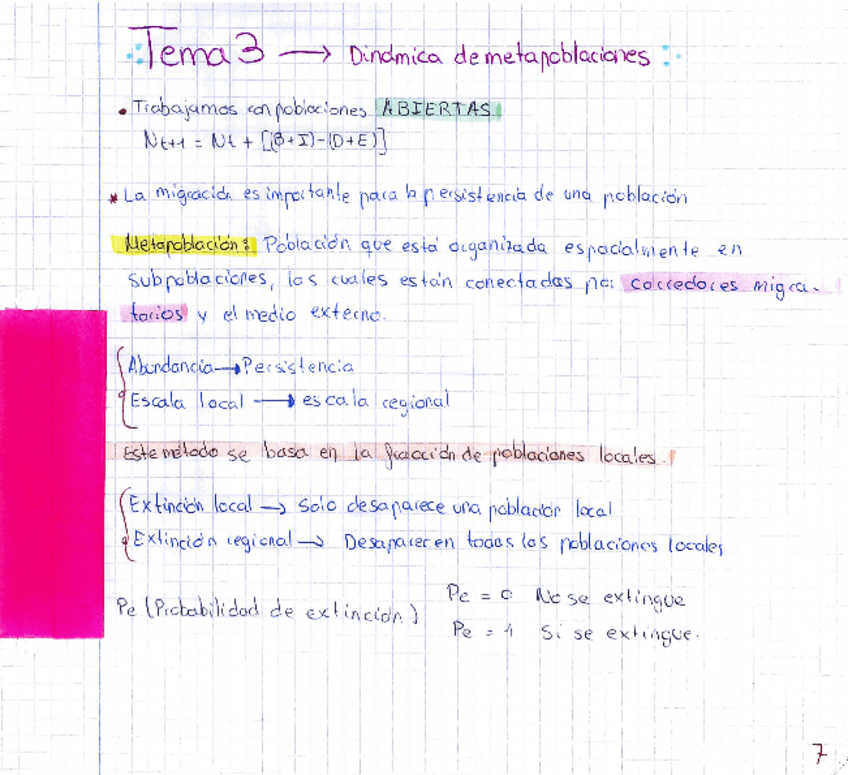 Tema 3 → Dinámica de metapoblaciones
• Trabajamos con poblaciones ABIERTAS
Nt+1 = Nt + [(B+I)-(D+E)]
* La migración es importante para la persistencia de una población
Metapoblación: Población que está organizada espacialmente en
subpoblaciones, las cuales están conectadas por corredores migra-
torios y el medio externo.
Abundancia → Persistencia
Escala local → escala regional
Este método se basa en la fracción de poblaciones locales.
Extinción local → Solo desaparece una población local
Extinción regional → Desaparecen todas las poblaciones locales
Pe (Probabilidad de extinción)
Pe = 0 No se extingue
Pe = 1 Si se extingue.
7